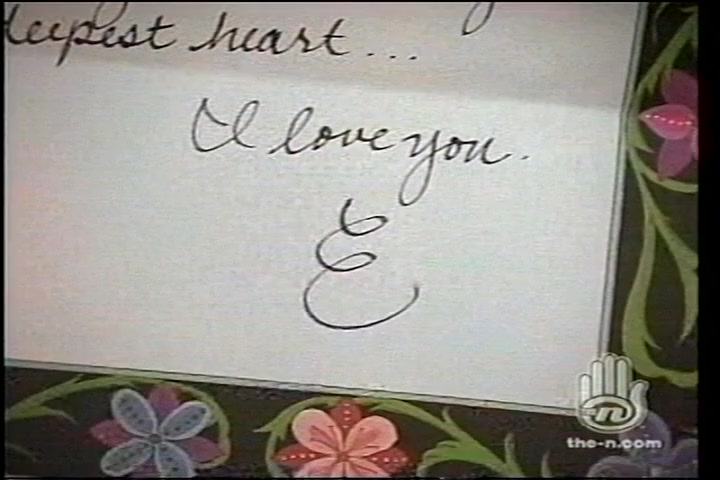 deepest heart...
I love you.
E
n
the-n.com